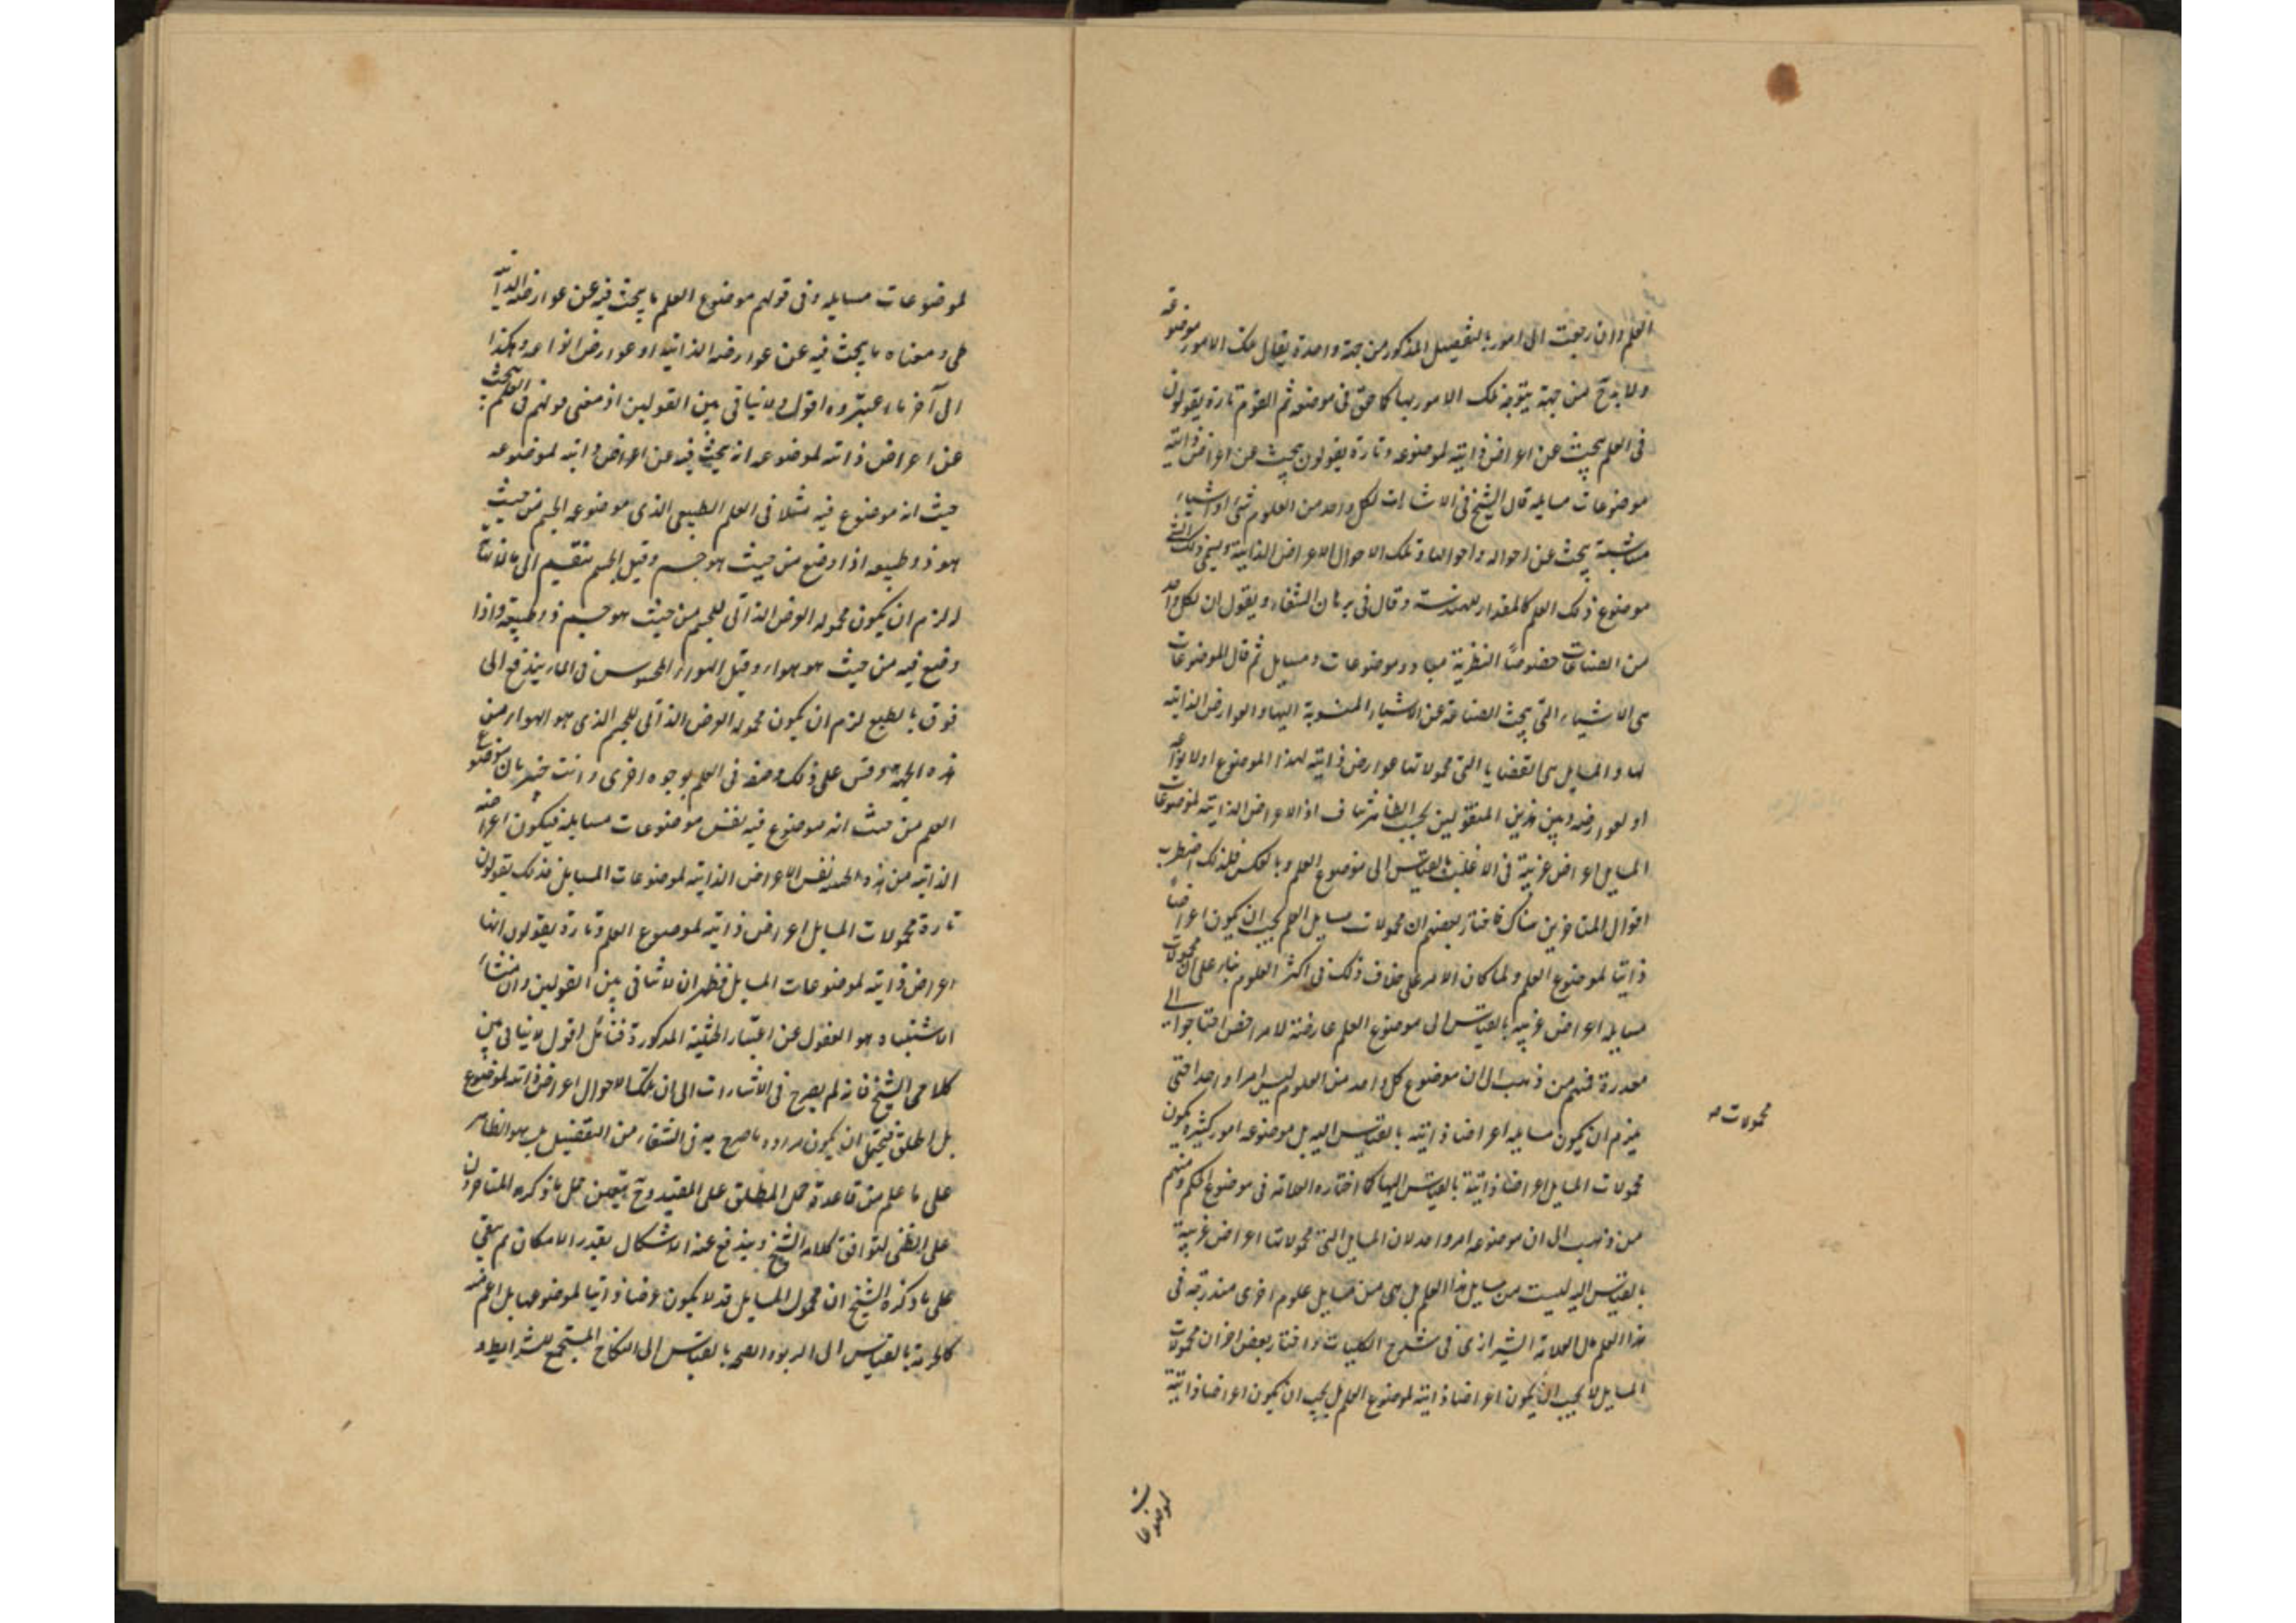 العلم وان رجعت الى امور بالتفصيل المذكور من جهة واحدة يقال تلك الامور موضوعه
ولا بدّ من جهة يتوجه تلك الامور بها كما حقق فى موضعه ثم القوم تارة يقولون
فى العلم يبحث عن اعراض ذاتية لموضوعه وتارة يقولون يبحث عن اعراض ذاتية
موضوعات مسايله قال الشيخ فى الاشارات لكل واحد من العلوم شئ او اشياء
متناسبة يبحث عن احواله واحوالها وتلك الاحوال الاعراض الذاتية ويسمى ذلك الشئ
موضوع ذلك العلم كالمقدار للهندسة وقال فى برهان الشفاء ويقول ان لكل واحد
من الصناعات خصوصًا النظرية مباد وموضوعات ومسايل ثم قال الموضوعات
هى الاشياء التى يبحث الصناعة عن الاشياء المنسوبة اليها والعوارض الذاتية
لها والمسايل هى القضايا التى محمولاتها عوارض ذاتية لهذا الموضوع او لانواعه
او لعوارضه وبين هذين المنقولين بحسب الظاهر تناف اذ الاعراض الذاتية لموضوعات
المسايل اعراض غريبة فى الاغلب بالقياس الى موضوع العلم وبالعكس فلذلك اضطرب
اقوال المتاخرين هناك فاختار بعضهم ان محمولات مسايل العلم يجب ان يكون اعراضًا
ذاتيا لموضوع العلم ولما كان الامر على خلاف ذلك فى اكثر العلوم بناء على ان محمولات
مسايله اعراض غريبه بالقياس الى موضوع العلم عارضة لامر اخص احتاجوا الى
معذرة فمنهم من ذهب الى ان موضوع كل واحد من العلوم ليس امرا واحدا حتى
يلزم ان يكون مسايله اعراضا ذاتيه بالقياس اليه بل موضوعه امور كثيرة يكون
محمولات المسايل اعراضا ذاتية بالقياس اليها كما اختاره العلامه فى موضوع الحكم ومنهم
من ذهب الى ان موضوعه امر واحد لان المسايل التى محمولاتها اعراض غريبة
بالقياس اليه ليست من مسايل هذا العلم بل هى من مسايل علوم اخرى مندرجة فى
هذا العلم قال العلامة الشيرازى فى شرح الكليات واختار بعض اخر ان محمولات
المسايل لا يجب ان يكون اعراضا ذاتية لموضوع العلم بل يجب ان يكون اعراضا ذاتية
محمولات صه
لموضوعات
لموضوعات مسايله وفى قولهم موضوع العلم ما يبحث فيه عن عوارضه الذاتية
طى ومعناه ما يبحث فيه عن عوارضه الذاتية او عوارض انواعه وهكذا
الى آخر ما عبّروه اقول ولا تنافى بين القولين اذ معنى قولهم فى العلم يبحث
عن اعراض ذاتيه لموضوعه انه يبحث فيه عن اعراض ذاتيه لموضوعه
حيث انه موضوع فيه مثلا فى العلم الطبيعى الذى موضوعه الجسم من حيث
هو ذو طبيعه اذا وضع من حيث هو جسم وقيل الجسم ينقسم الى ما لا نهاية
له لزم ان يكون محموله العرض الذاتى للجسم من حيث هو جسم ذو طبيعة واذا
وضع فيه من حيث هو هواء وقيل الهواء المحبوس فى الماء يندفع الى
فوق بالطبع لزم ان يكون محموله العرض الذاتى للجسم الذى هو الهواء من
هذه الجهة وقس على ذلك وضعه فى العلم بوجوه اخرى وانت خبير بان موضوع
العلم من حيث انه موضوع فيه نفس موضوعات مسايله فيكون اعراضه
الذاتيه من هذه الجهة نفس الاعراض الذاتيه لموضوعات المسايل فلذلك يقولون
تارة محمولات المسايل اعراض ذاتيه لموضوع العلم وتارة يقولون انها
اعراض ذاتيه لموضوعات المسايل فظهر ان لا تنافى بين القولين وان منشاء
الاشتباه هو الغفول عن اعتبار الحيثية المذكورة فتامّل اقول لا تنافى بين
كلامى الشيخ فانه لم يصرح فى الاشارات الى ان تلك الاحوال اعراض ذاتيه لموضوع
بل اطلق فيحتمل ان يكون مراده ما صرح به فى الشفاء من التفصيل بل هو الظاهر
على ما علم من قاعدة حمل المطلق على المقيد وح يتعين حمل ما ذكره المتاخرون
على الظنى لتوافق كلام الشيخ ويندفع عنه الاشكال بقدر الامكان نعم بقى
على ما ذكره الشيخ ان محمول المسايل قد لا يكون عرضا ذاتيا لموضوعها بل اعم منه
كالحرمة بالقياس الى الربوا والصحه بالقياس الى النكاح المستجمع للشرايط و